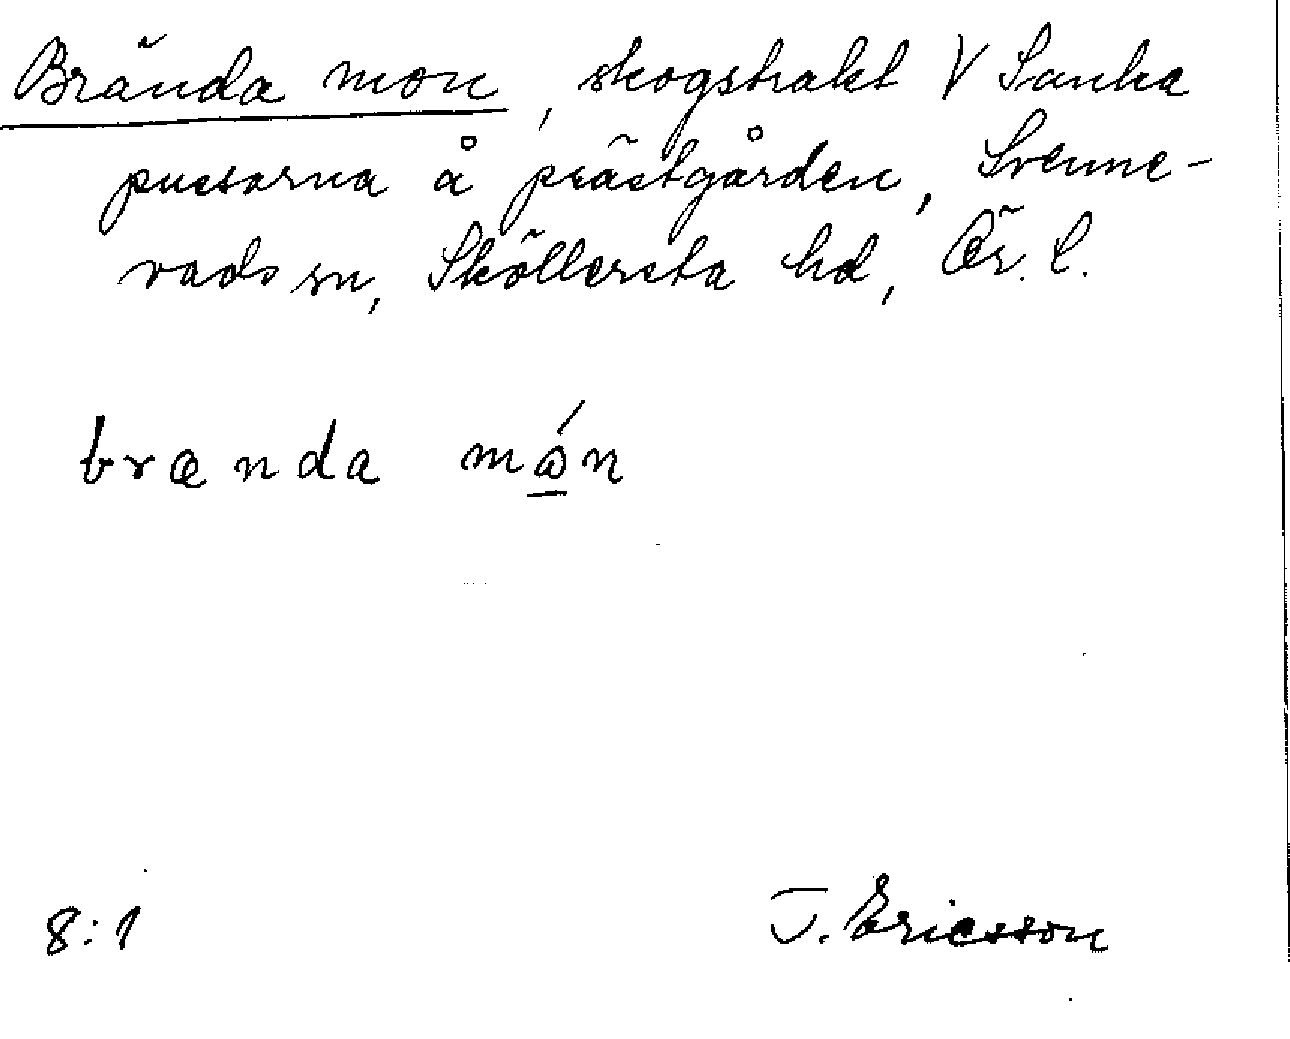 Brända mon, skogstrakt V Sanka
pussarna å prästgården, Svenne-
vads sn, Sköllersta hd, Ör. l.
brænda mån
8:1
J. Ericsson